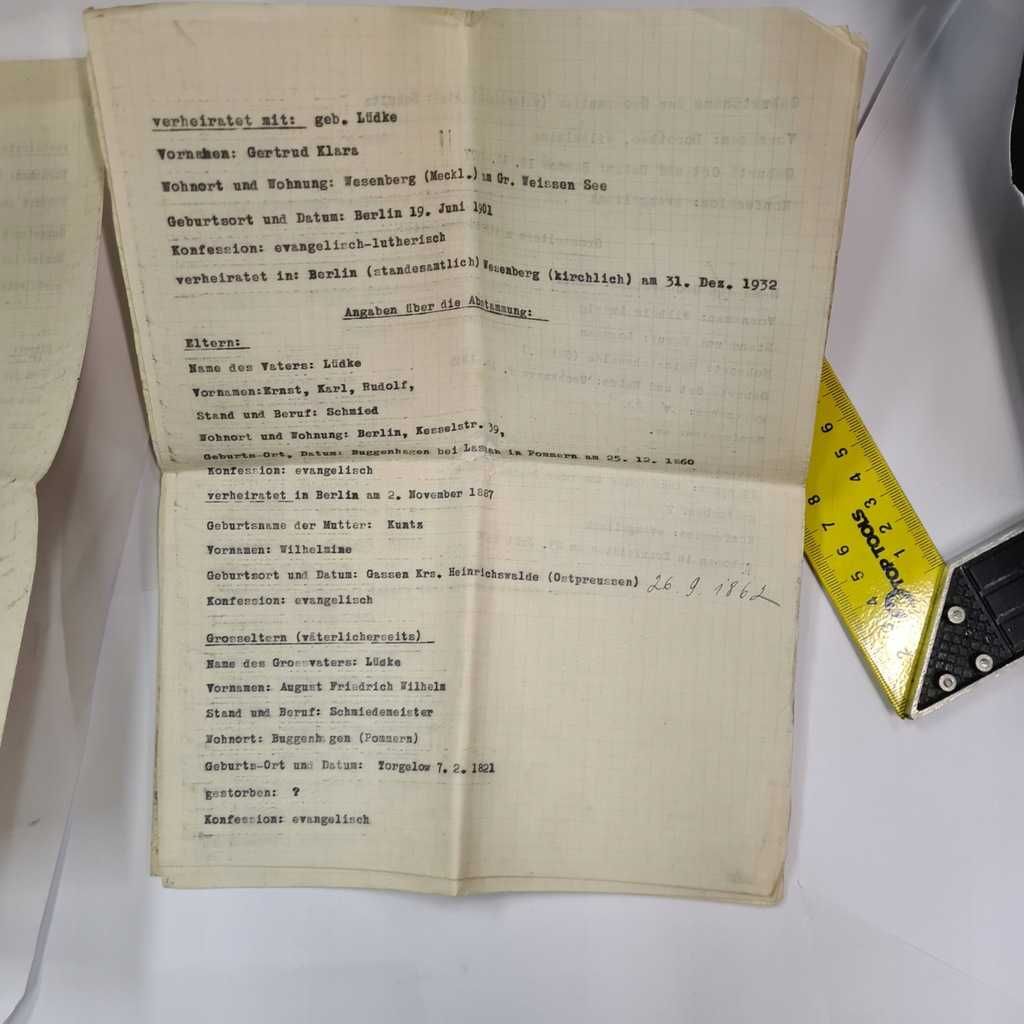 verheiratet mit: geb. Lüdke
Vornamen: Gertrud Klara
Wohnort und Wohnung: Wesenberg (Meckl.) am Gr. Weissen See
Geburtsort und Datum: Berlin 19. Juni 1901
Konfession: evangelisch-lutherisch
verheiratet in: Berlin (standesamtlich) Wesenberg (kirchlich) am 31. Dez. 1932
Angaben über die Abstammung:
Eltern:
Name des Vaters: Lüdke
Vornamen:Ernst, Karl, Rudolf,
Stand und Beruf: Schmied
Wohnort und Wohnung: Berlin, Kesselstr. 39,
Geburts-Ort, Datum: Buggenhagen bei Lassan in Pommern am 25. 12. 1860
Konfession: evangelisch
verheiratet in Berlin am 2. November 1887
Geburtsname der Mutter: Kuntz
Vornamen: Wilhelmine
Geburtsort und Datum: Gassen Krs. Heinrichswalde (Ostpreussen) 26. 9. 1862
Konfession: evangelisch
Grosseltern (väterlicherseits)
Name des Grossvaters: Lüdke
Vornamen: August Friedrich Wilhelm
Stand und Beruf: Schmiedemeister
Wohnort: Buggenhagen (Pommern)
Geburts-Ort und Datum: Torgelow 7. 2. 1821
gestorben: ?
Konfession: evangelisch
TOP TOOLS